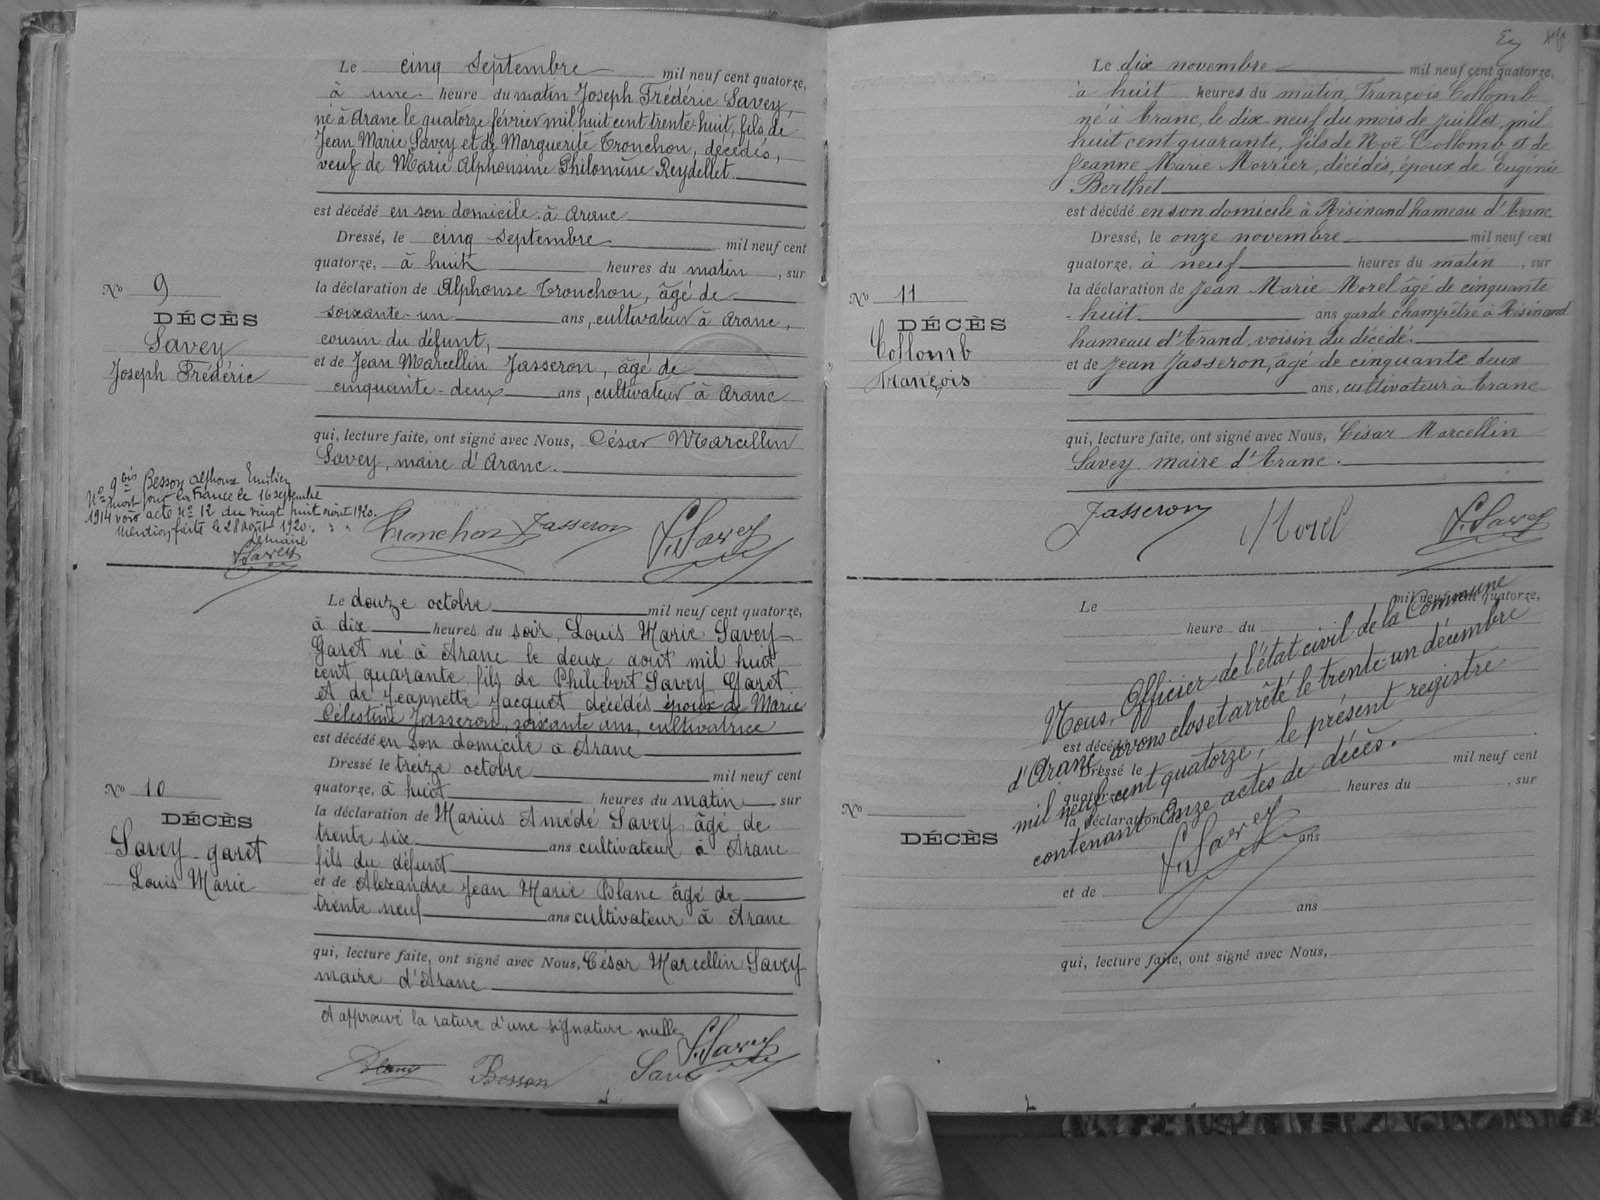 Le cinq septembre mil neuf cent quatorze,
à une heure du matin Joseph Frédéric Savey,
né à Aranc le quatorze février mil huit cent trente-huit, fils de
Jean Marie Savey et de Marguerite Tronchon, décédés,
veuf de Marie Alphonsine Philomène Reydellet
est décédé en son domicile à Aranc
Dressé, le cinq septembre mil neuf cent
quatorze, à huit heures du matin, sur
la déclaration de Alphonse Tronchon, âgé de
soixante-un ans, cultivateur à Aranc,
cousin du défunt,
et de Jean Marcellin Jasseron, âgé de
cinquante-deux ans, cultivateur à Aranc
qui, lecture faite, ont signé avec Nous, César Marcellin
Savey, maire d'Aranc.
No 9
DÉCÈS
Savey
Joseph Frédéric
No 9 bis Besson Alphonse Emilien
mort pour la France le 16 septembre
1914 voir acte No 12 du vingt huit août 1920.
Mention faite le 28 août 1920.
Le maire
Savey
Tronchon Jasseron C. Savey
Le douze octobre mil neuf cent quatorze,
à dix heures du soir, Louis Marie Savey
Garet né à Aranc le deux août mil huit
cent quarante fils de Philibert Savey Garet
et de Jeannette Jacquet décédés époux de Marie
Célestine Jasseron, soixante ans, cultivatrice
est décédé en son domicile à Aranc
Dressé le treize octobre mil neuf cent
quatorze, à huit heures du matin sur
la déclaration de Marius Amédé Savey âgé de
trente six ans cultivateur à Aranc
fils du défunt
et de Alexandre Jean Marie Blanc âgé de
trente neuf ans cultivateur à Aranc
qui, lecture faite, ont signé avec Nous, César Marcellin Savey
maire d'Aranc
No 10
DÉCÈS
Savey-garet
Louis Marie
et approuvé la rature d'une signature nulle
C. Savey
Blanc Besson Save
Le dix novembre mil neuf cent quatorze,
à huit heures du matin, François Collomb
né à Aranc, le dix-neuf du mois de juillet mil
huit cent quarante, fils de Noë Collomb et de
Jeanne Marie Morrier, décédés, époux de Eugénie
Berthet
est décédé en son domicile à Résinand hameau d'Aranc
Dressé, le onze novembre mil neuf cent
quatorze, à neuf heures du matin, sur
la déclaration de Jean Marie Morel âgé de cinquante
-huit ans garde champêtre à Résinand
hameau d'Arand, voisin du décédé.
et de Jean Jasseron, âgé de cinquante deux
ans, cultivateur à Aranc
qui, lecture faite, ont signé avec Nous, César Marcellin
Savey maire d'Aranc.
No 11
DÉCÈS
Collomb
François
Jasseron Morel C. Savey
Le mil neuf cent quatorze,
heure du
est décédé
Dressé le mil neuf cent
quatorze, heures du , sur
la déclaration de
ans
et de
ans
qui, lecture faite, ont signé avec Nous,
No
DÉCÈS
Nous, Officier de l'état civil de la Commune
d'Aranc avons clos et arrêté le trente-un décembre
mil neuf cent quatorze, le présent registre
contenant Onze actes de décès.
C. Savey